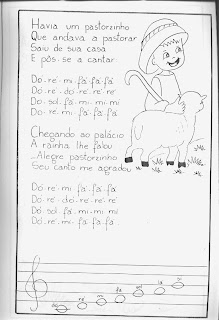 Havia um pastorzinho
Que andava a pastorar
Saiu de sua casa
E pôs-se a cantar:
Dó-ré-mi-fá-fá-fá
Dó-ré-dó-ré-ré-ré
Dó-sol-fá-mi-mi-mi
Dó-ré-mi-fá-fá-fá
Chegando ao palácio
A rainha lhe falou
Alegre pastorzinho
Seu canto me agradou
Dó-ré-mi-fá-fá-fá
Dó-ré-dó-ré-ré-ré
Dó-sol-fá-mi-mi-mi
Dó-ré-mi-fá-fá-fá
dó ré mi fá sol lá si